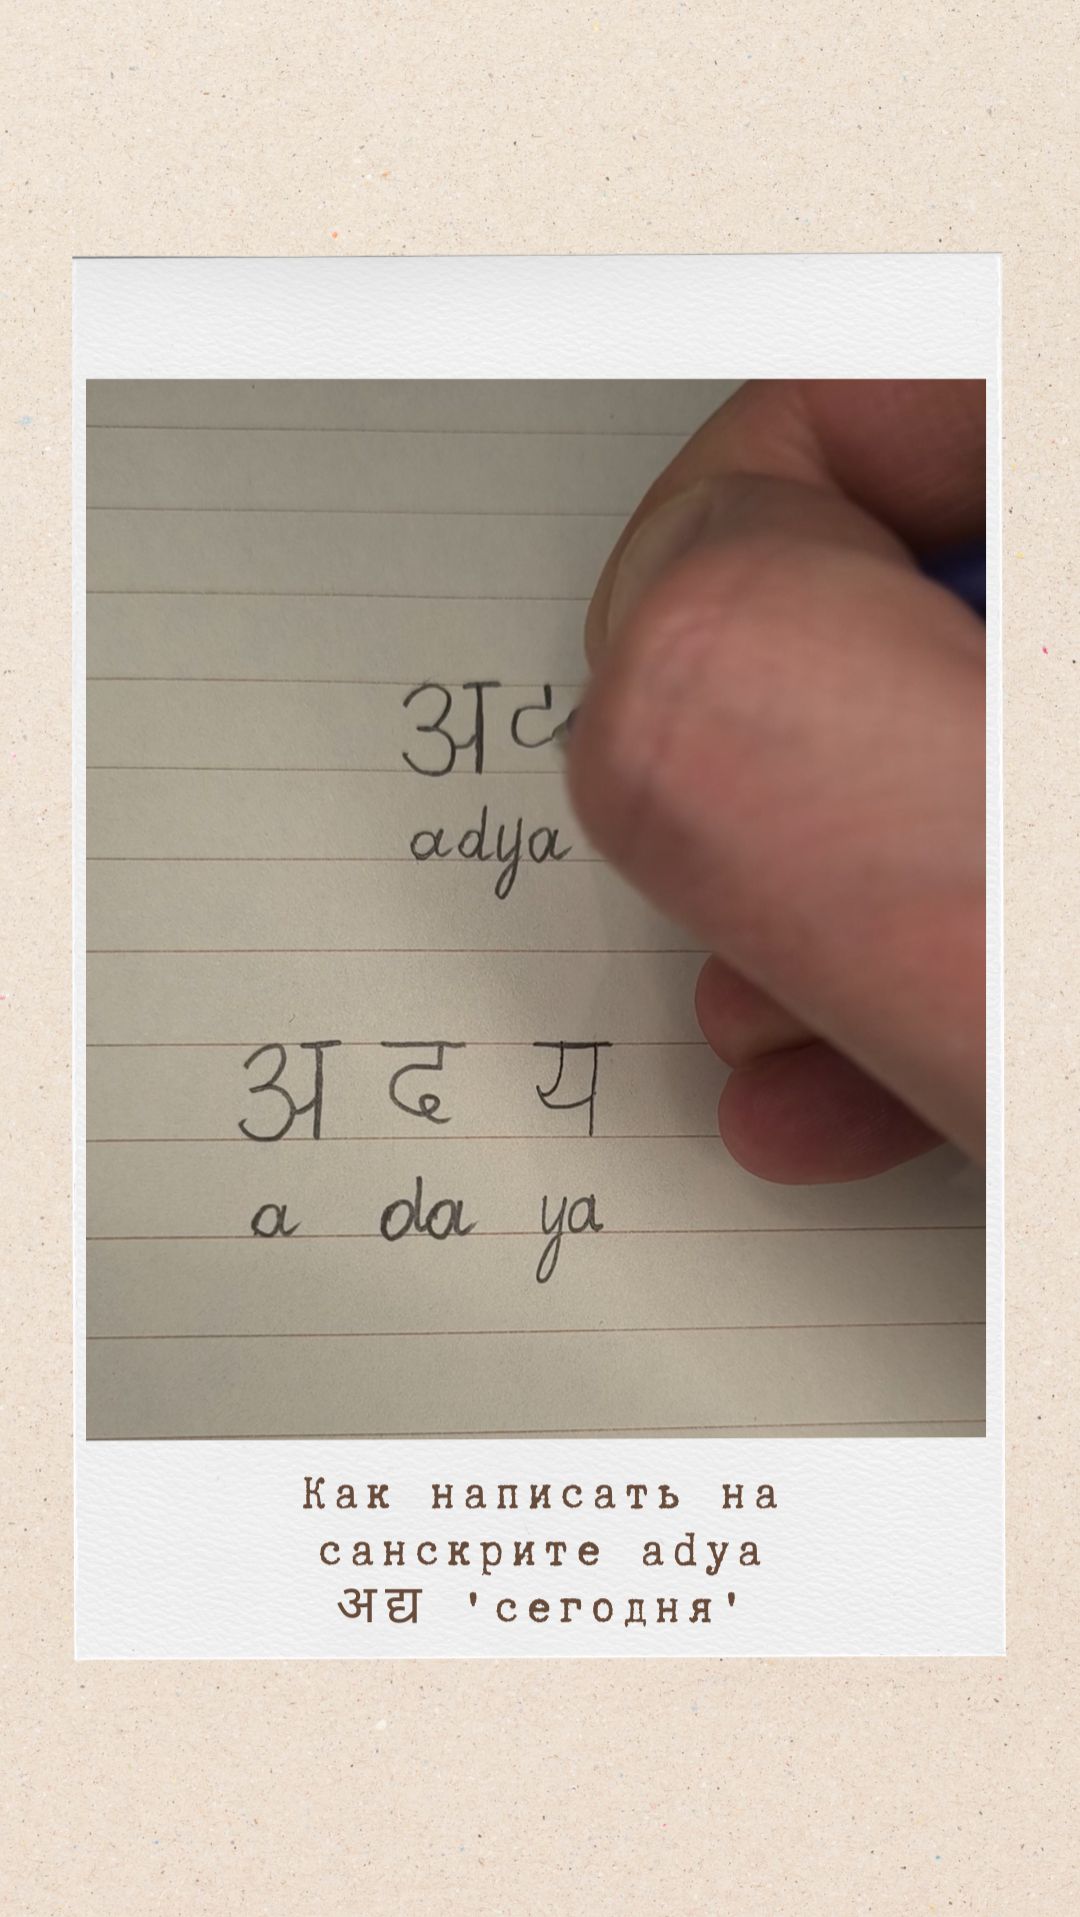 अ
adya
अ द य
a da ya
Как написать на
санскрите adya
अद्य 'сегодня'